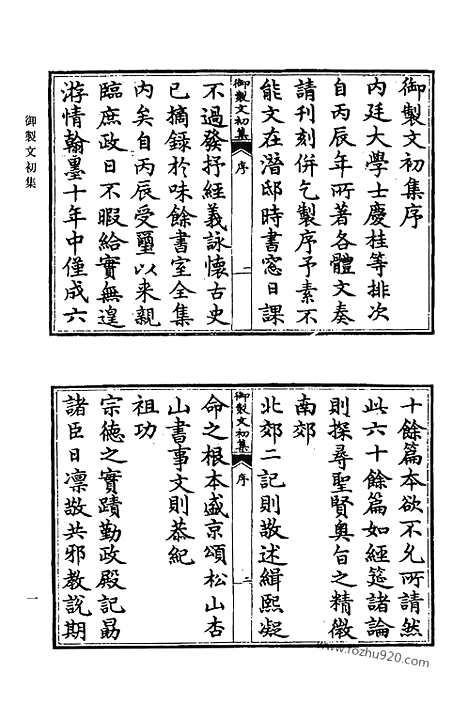 御製文初集序
內廷大學士慶桂等排次
自丙辰年所著各體文奏
請刊刻併乞製序予素不
能文在潛邸時書窓日課
御製文初集 序 一
不過發抒經義詠懷古史
已摘錄於味餘書室全集
內矣自丙辰受璽以来親
臨庶政日不暇給實無遑
游情翰墨十年中僅成六
十餘篇本欲不允所請然
此六十餘篇如經筵諸論
則探尋聖賢奥旨之精微
南郊
北郊二記則敬述緝熙凝
御製文初集 序 二
命之根本盛京頌松山杏
山書事文則恭紀
祖功
宗德之實蹟勤政殿記勗
諸臣日凛敬共邪教說期
御製文初集
一
www.fozhu920.com